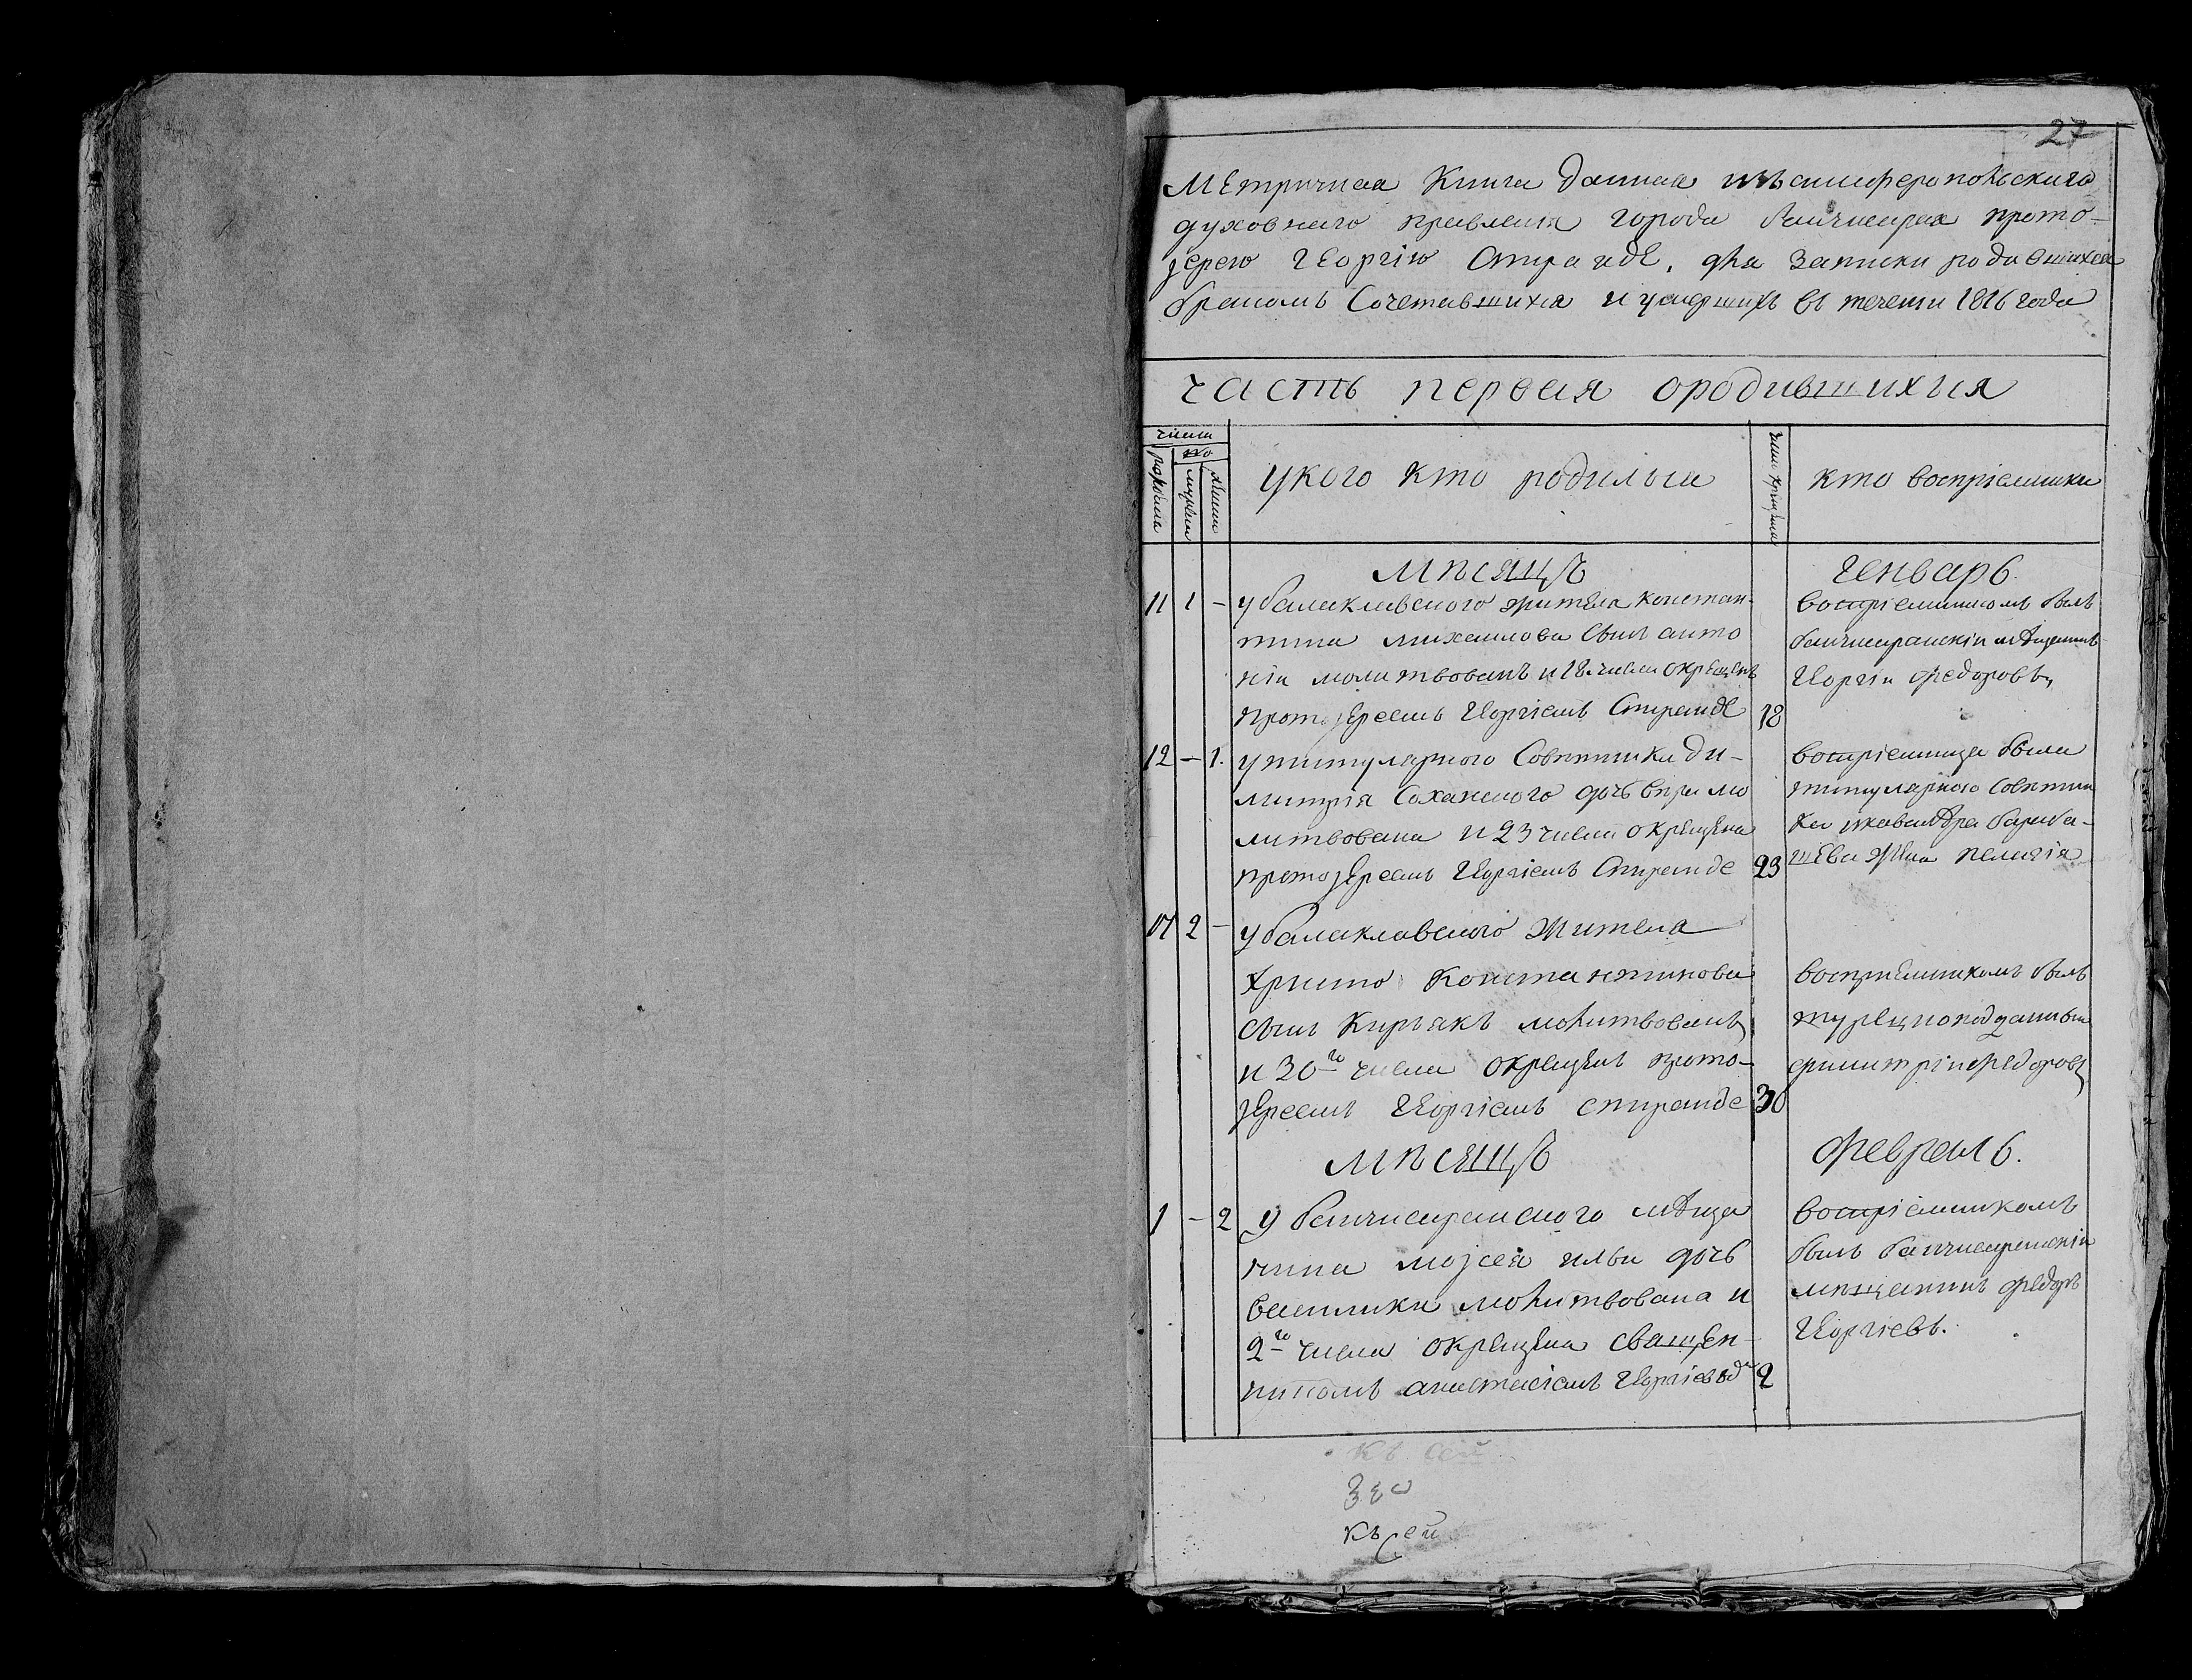 27
Метричная Книга данная изъ симферопольскаго
духовнаго правленія города бахчисарая прото-
јерею Георгію Спиранде, для записки родившихся
бракомъ Сочетавшихся и умершихъ въ течении 1816 года
часть первая ородившихся
числа
рождения
мужеска
женска
укого кто родился
числа крещения
кто восприемники
мѣсяцъ Генварь.
11 1 - у балаклавского жителя констан-
тина михаилова сынъ анто
ній молитвованъ и 18 числа окрещенъ
протојереемъ Георгіемъ Спиранде 18
воспріемникомъ былъ
бахчисарайскій мѣщанинъ
Георгій федоровъ,
12 - 1. у титулярного Совѣтника ди-
митрія Соханского дочь вѣра мо
литвована и 23 числа окрещена
протојереемъ Георгіемъ Спиранде 23
воспріемница была
титулярного совѣтни
ка икавалера
жена пелагія
17 2 - у балаклавского жителя
христо Константинова
сынъ Кирьякъ молитвованъ
и 30го числа окрещенъ прото-
јереемъ Георгіемъ спиранде 30
восприемникомъ былъ
турецкоподданый
димитрій федоровъ
мѣсяцъ февраль.
1 - 2 у бахчисарайского мѣща
нина мојсея ильи дочь
василики молитвована и
2го числа окрещена священ-
никомъ анастасіемъ 2
воспріемникомъ
былъ бахчисарайскій
мѣщанинъ федоръ
Георгіевъ.
къ сей
къ сей